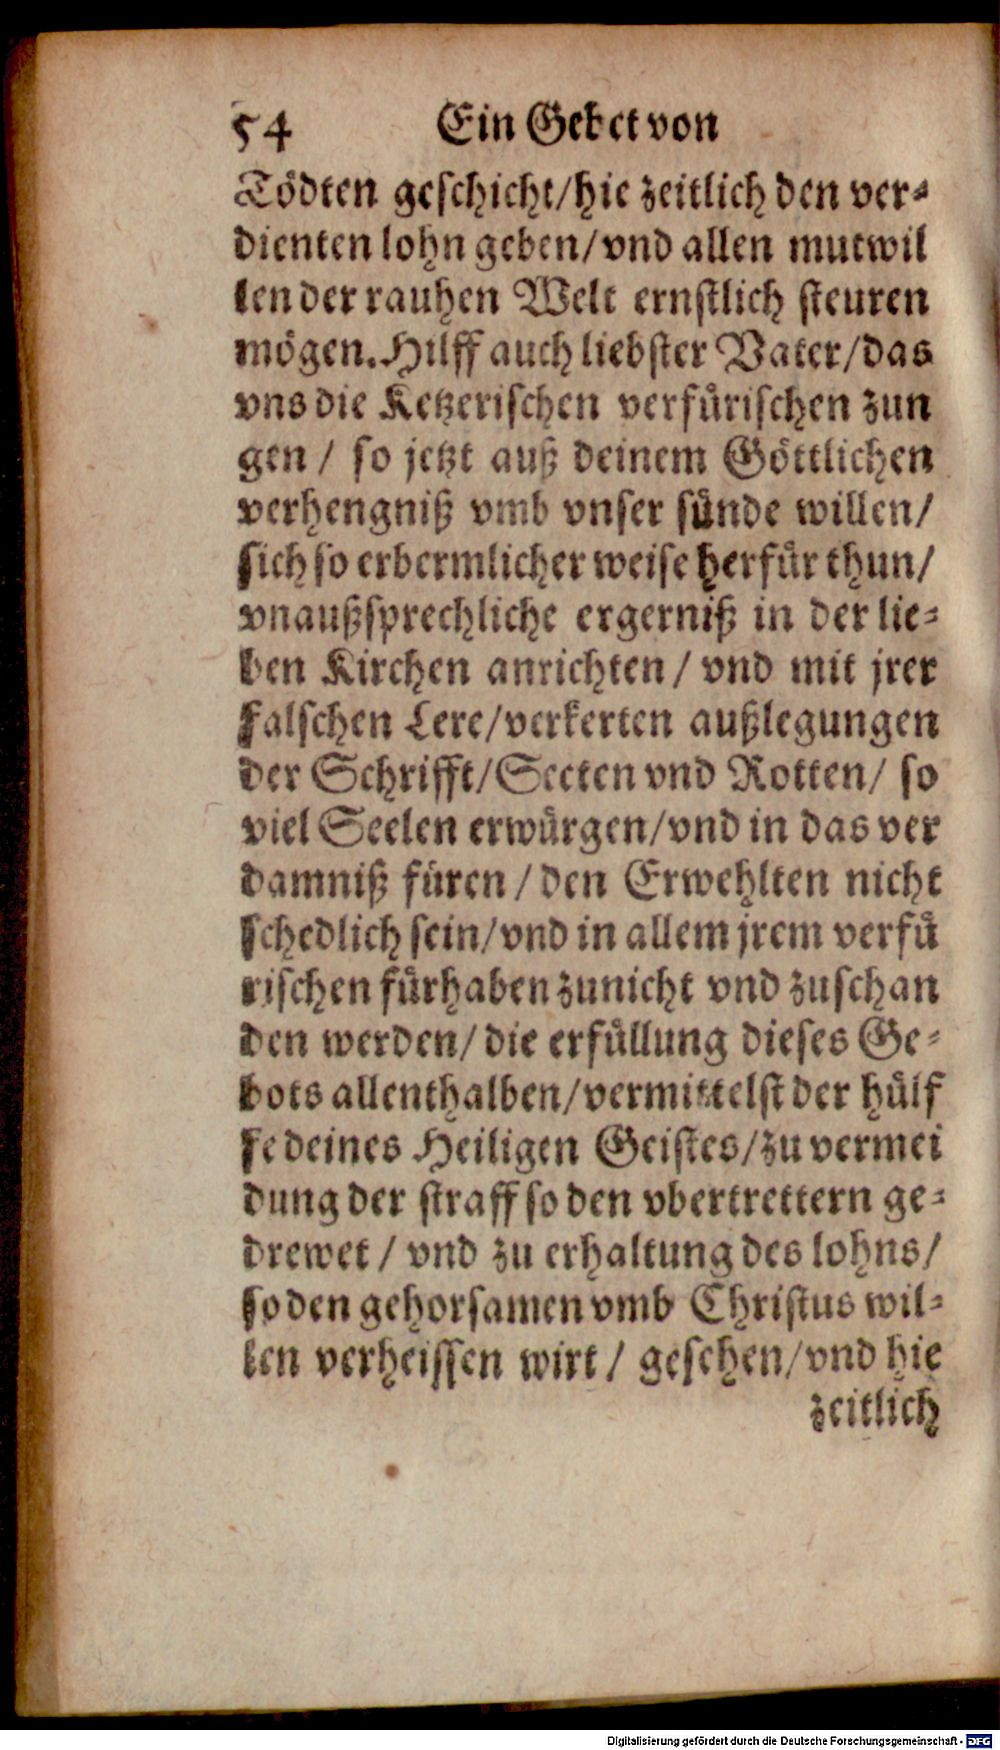 54 Ein Gebet von
Tödten geschicht/hie zeitlich den ver-
dienten lohn geben/vnd allen mutwil
len der rauhen Welt ernstlich steuren
mögen. Hilff auch liebster Vater/das
vns die Ketzerischen verfürischen zun
gen / so jetzt auß deinem Göttlichen
verhengniß vmb vnser sünde willen/
sich so erbermlicher weise herfür thun/
vnaußsprechliche ergerniß in der lie-
ben Kirchen anrichten / vnd mit jrer
falschen Lere/verkerten außlegungen
der Schrifft/Secten vnd Rotten/ so
viel Seelen erwürgen/vnd in das ver
damniß füren / den Erwehlten nicht
schedlich sein/vnd in allem jrem verfü
rischen fürhaben zunicht vnd zuschan
den werden/ die erfüllung dieses Ge-
bots allenthalben/vermittelst der hülf
fe deines Heiligen Geistes/zu vermei
dung der straff so den vbertrettern ge-
drewet / vnd zu erhaltung des lohns/
so den gehorsamen vmb Christus wil-
len verheissen wirt / geschen/vnd hie
zeitlich
Digitalisierung gefördert durch die Deutsche Forschungsgemeinschaft - DFG